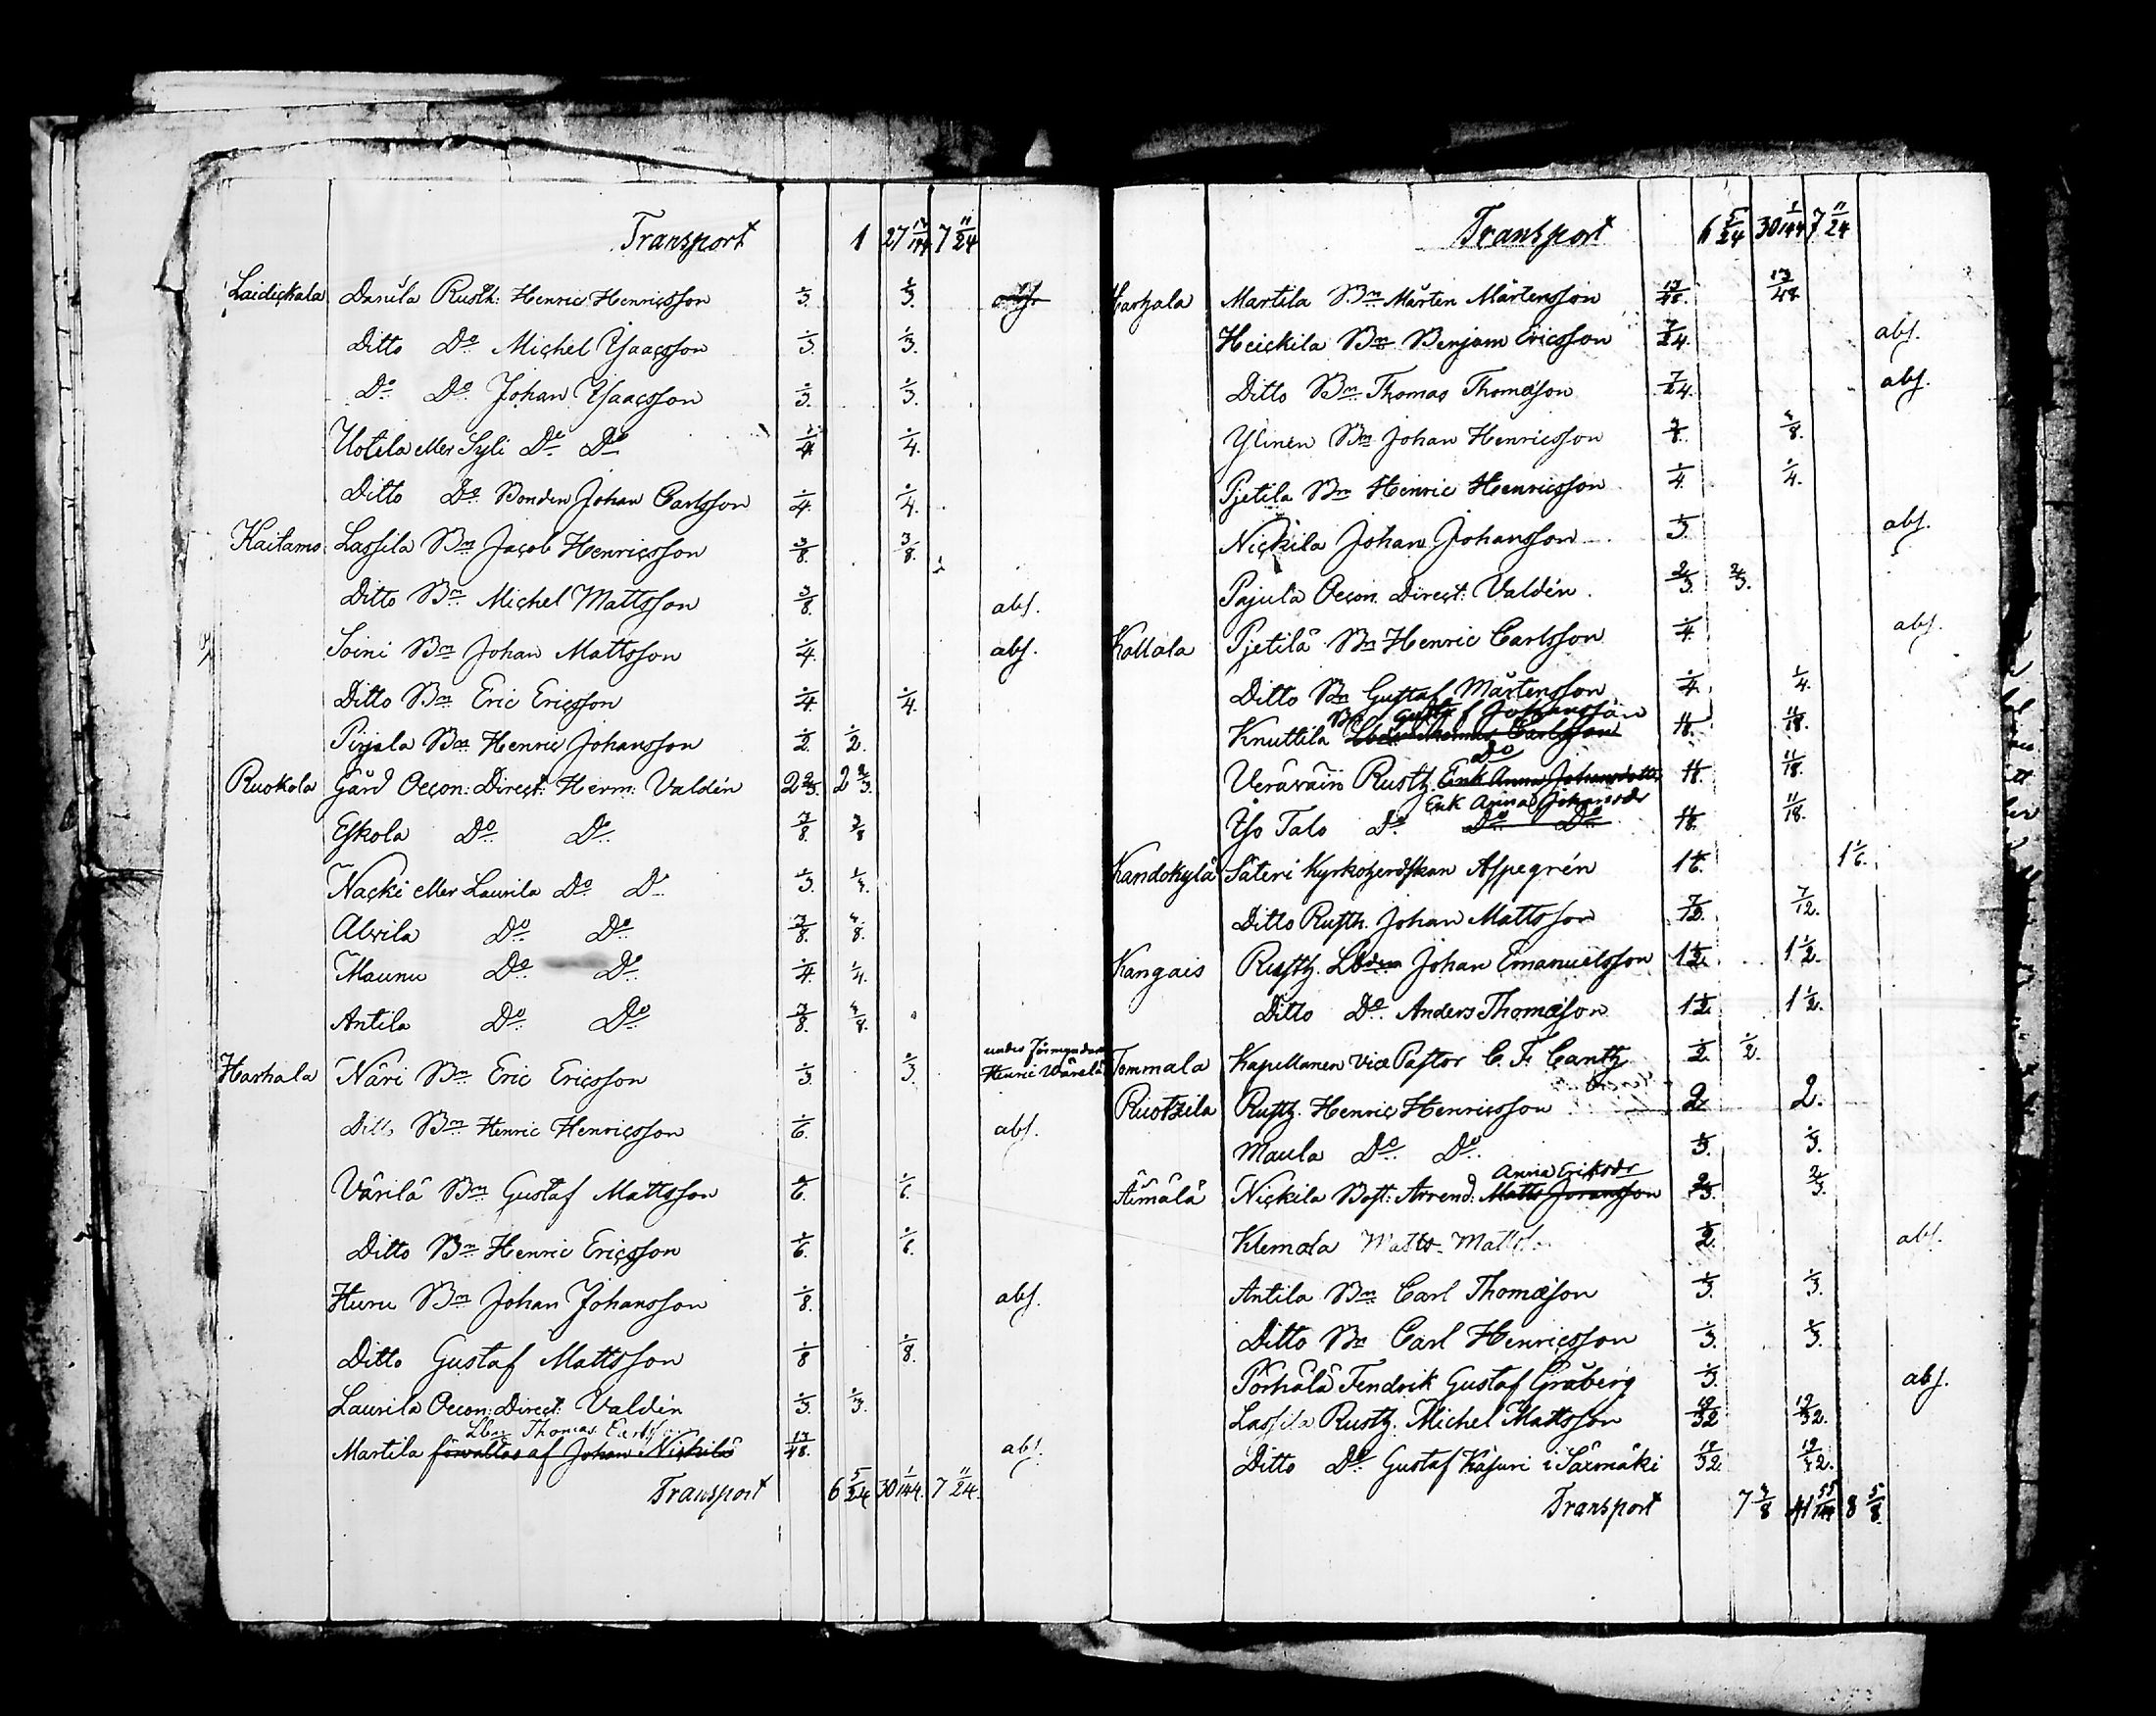 Transport 1 27 17/144 7 11/24
Laidickala Danila Rusth: Henric Henricsson 1/3. 1/3.
Ditto Do Michel Isaacsson 1/3. 1/3.
Do Do Johan Isaacsson 1/3. 1/3.
Uotila eller Syli Do Do 1/4 1/4.
Ditto Do Bonden Johan Carlsson 1/4. 1/4.
Kaitamo Lassila Bn Jacob Henricsson 3/8. 3/8.
Ditto Bn Michel Mattsson 3/8. abs.
Soini Bn Johan Mattsson 1/4. abs.
Ditto Bn Eric Ericsson 1/4. 1/4.
Pirjala Bn Henric Johansson 1/2. 1/2.
Ruokola Gård Oecon: Direct: Herm: Valdén 2 2/3. 2 2/3.
Eskola Do Do 3/8. 3/8
Nacki eller Laurila Do Do 1/3. 1/3.
Alvila Do Do 3/8. 3/8.
Maunu Do Do 1/4. 1/4.
Antila Do Do 3/8. 3/8.
under förmyndare
Harhala Näri Bn Eric Ericsson 1/3. 1/3. Henric Wärilä
Ditto Bn Henric Henricsson 1/6. abs.
Värilä Bn Gustaf Mattsson 1/6. 1/6.
Ditto Bn Henric Ericsson 1/6. 1/6.
Huru Bn Johan Johansson 1/8. abs.
Ditto Gustaf Mattsson 1/8 1/8.
Laurila Oecon: Direct: Valdén 1/3. 1/3.
Lbn Thomas
Martila förvaltas af Johan Nickilä 17/48. abs.
Transport 6 5/24 30 1/144. 7 11/24.
Transport 6 5/24 30 1/144 7 11/24
Harhala Martila Bn Mårten Mårtensson 13/48. 13/48.
Heickila Bn Benjam Ericsson 7/24. abs.
Ditto Bn Thomas Thomæson 7/24. abs.
Ylinen Bn Johan Henricsson 3/8. 3/8.
Pjetila Bn Henric Henricsson 1/4. 1/4.
Nickila Johan Johansson 1/3. abs.
Pajula Oecon. Direct: Valdén. 2/3. 2/3.
Kallala Pjetilä Bn Henric Carlsson 1/4. abs.
Ditto Bn Gustaf Mårtensson 1/4. 1/4.
Bn Gustaf Johansson
Knuttila Lbn Thomas Carlsson 11/18. 11/18.
Do
Veräväin Rusth. Enk Anna Johansdotter 11/18. 11/18.
Enk Anna Johansdr
Iso Talo Do Do Do 11/18. 11/18.
Kandokylä Säteri Kyrkoherdskan Aspegrén 1 1/6. 1 1/6.
Ditto Rusth. Johan Mattsson 7/12. 7/12.
Kangais Rusth. Lbden Johan Emanuelsson 1 1/2. 1 1/2.
Ditto Do Anders Thomæson 1 1/2. 1 1/2.
Tommala Kapellanen vice Pastor C. F. Cantz 1/2. 1/2.
Ruotzila Rusth. Henric Henricsson 2. 2.
Maula Do Do 1/3. 1/3.
Anna Eriksdr
Äimälä Nickila Bost: Arrend: Matts Joransson 2/3. 2/3.
Klemola Matts 1/2. abs.
Antila Bn Carl Thomæson 1/3. 1/3.
Ditto Bn Carl Henricsson 1/3. 1/3.
Pörhälä Fendrik Gustaf Gråberg 1/3. abs.
Lassila Rusth. Michel Mattsson 19/32 19/32.
Ditto Do Gustaf Kasuri i Särmäki 19/32. 19/32.
Transport 7 3/8 41 55/144 8 5/8.